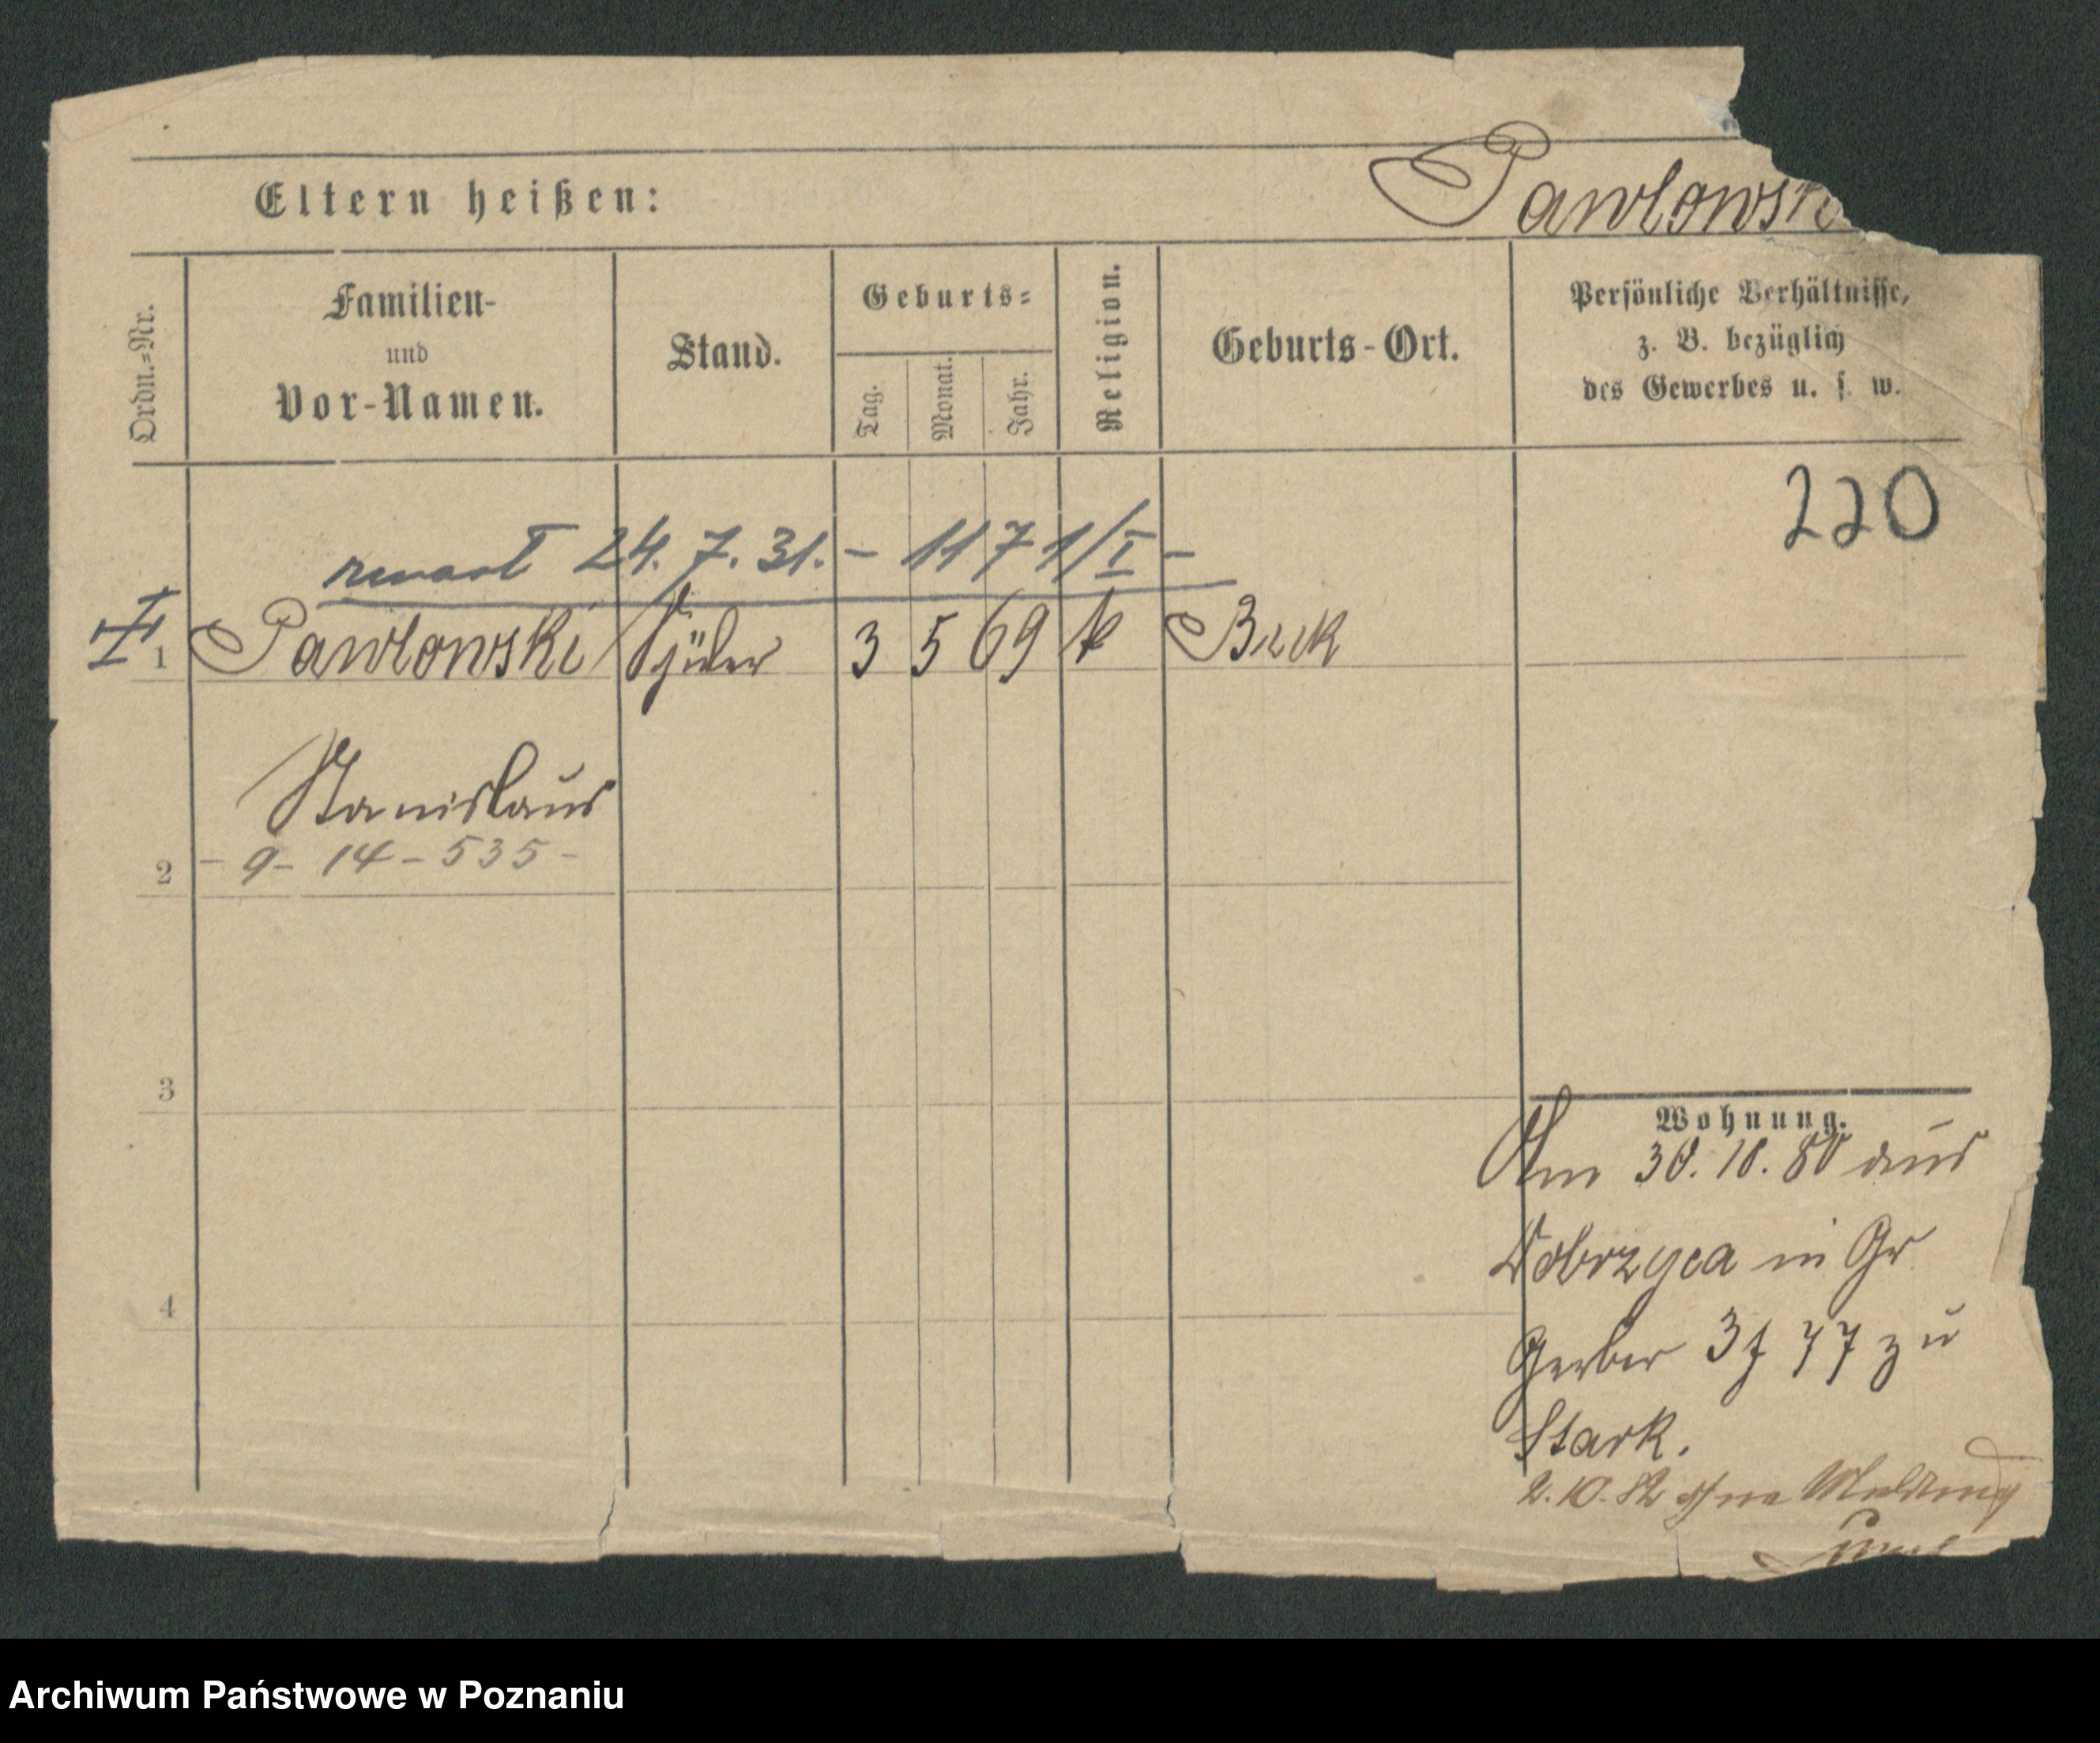 Pawlowski
Eltern heißen:
Ordn.=Nr.
Familien-
und
Vor-Namen.
Stand.
Geburts=
Tag.
Monat.
Jahr.
Religion.
Geburts-Ort.
Persönliche Verhältnisse,
z. B. bezüglich
des Gewerbes u. s. w.
220
24. 7. 31. - 1171/I -
I
1 Pawlowski Schüler 3 5 69 k Buk
Stanislaus
2 - 9 - 14 - 535 -
3
4
Wohnung.
Am 30. 10. 80 aus
Dobrzyca in Gr
Gerber 37 77 zu
Stark.
2. 10. 82 ohne Meldung
Archiwum Państwowe w Poznaniu